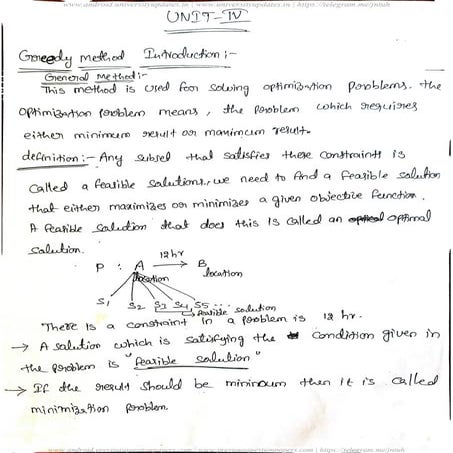 www.android.universityupdates.in | www.universityupdates.in | https://telegram.me/jntuh
UNIT-IV
Greedy method Introduction:-
General Method:-
This method is used for solving optimization Problems. the
optimization problem means, the Problem which requires
either minimum result or maximum result.
definition:- Any subset that satisfies these constraints is
called a feasible solutions, we need to find a feasible solution
that either maximizes or minimizes a given objective function.
A feasible solution that does this is called an optimal
solution.
P : A 12hr B
location location
S1 S2 S3 S4 S5 ...
feasible solution
There is a constraint in a problem is 12 hr.
→ A solution which is satisfying the condition given in
the problem is "feasible solution"
→ If the result should be minimum then it is called
minimization problem.